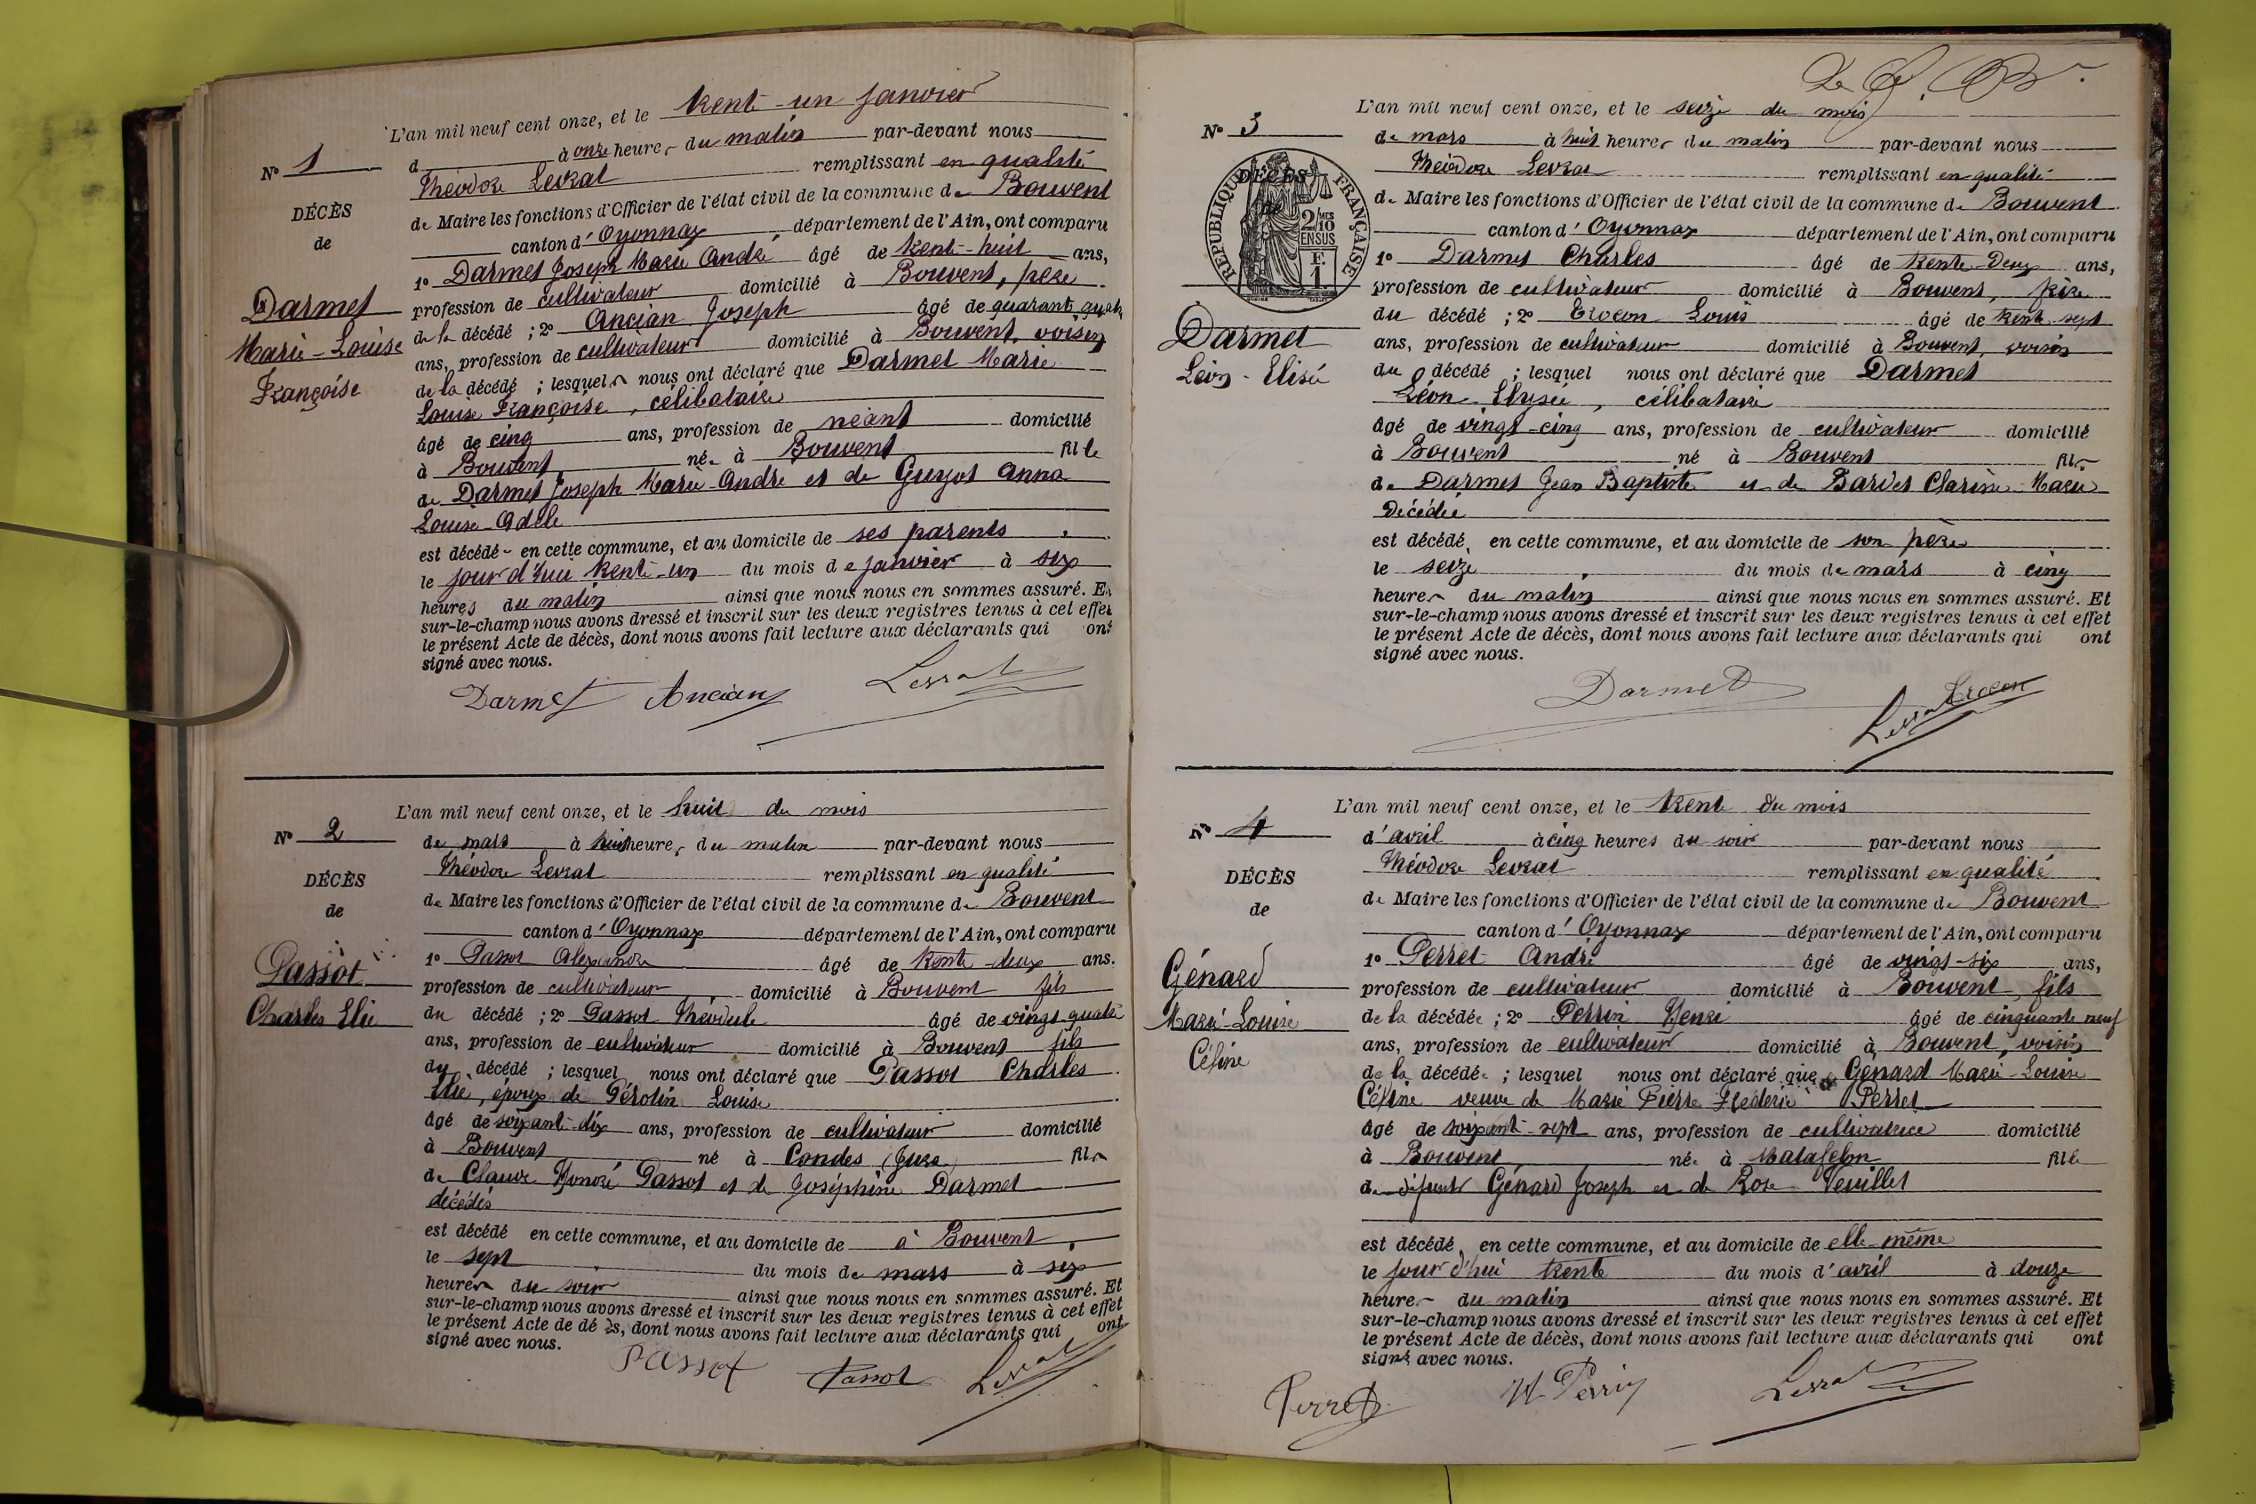 L'an mil neuf cent onze, et le trente-un janvier
N° 1
d à onze heures du matin par-devant nous
Théodore Levrat remplissant en qualité
DÉCÈS
de Maire les fonctions d'Officier de l'état civil de la commune de Bouvent
de
canton d'Oyonnax département de l'Ain, ont comparu
1° Darmet Joseph Marie André âgé de trente-huit ans,
Darmet
profession de cultivateur domicilié à Bouvent, père
Marie-Louise
de la décédé ; 2° Ancian Joseph âgé de quarante quatre
Françoise
ans, profession de cultivateur domicilié à Bouvent, voisin
de la décédé ; lesquels nous ont déclaré que Darmet Marie
Louise Françoise, célibataire
âgé de cinq ans, profession de néant domicilié
à Bouvent née à Bouvent fille
de Darmet Joseph Marie-André et de Guyot Anna
Louise-Adèle
est décédé en cette commune, et au domicile de ses parents
le jour d'hui trente-un du mois de janvier à six
heures du matin ainsi que nous nous en sommes assuré. Et
sur-le-champ nous avons dressé et inscrit sur les deux registres tenus à cet effet
le présent Acte de décès, dont nous avons fait lecture aux déclarants qui ont
signé avec nous.
Darmet Ancian Levrat
L'an mil neuf cent onze, et le huit du mois
N° 2
de mars à huit heures du matin par-devant nous
Théodore Levrat remplissant en qualité
DÉCÈS
de Maire les fonctions d'Officier de l'état civil de la commune de Bouvent
de
canton d'Oyonnax département de l'Ain, ont comparu
1° Passot Alexandre âgé de trente-deux ans.
Passot
profession de cultivateur domicilié à Bouvent fils
Charles Elie
du décédé ; 2° Passot Théodule âgé de vingt-quatre
ans, profession de cultivateur domicilié à Bouvent fils
du décédé ; lesquel nous ont déclaré que Passot Charles
Elie, époux de Pérotin Louise
âgé de soixante-dix ans, profession de cultivateur domicilié
à Bouvent né à Condes (Jura) fils
de Claude Honoré Passot et de Joséphine Darmet
décédés
est décédé en cette commune, et au domicile de à Bouvent
le sept du mois de mars à six
heures du soir ainsi que nous nous en sommes assuré. Et
sur-le-champ nous avons dressé et inscrit sur les deux registres tenus à cet effet
le présent Acte de décès, dont nous avons fait lecture aux déclarants qui ont
signé avec nous.
Passot Passot Levrat
L'an mil neuf cent onze, et le seize du mois
N° 3
de mars à huit heures du matin par-devant nous
Théodore Levrat remplissant en qualité
DÉCÈS
de
RÉPUBLIQUE FRANÇAISE
2/10 EN SUS
F. 1
de Maire les fonctions d'Officier de l'état civil de la commune de Bouvent
canton d'Oyonnax département de l'Ain, ont comparu
1° Darmet Charles âgé de trente-deux ans,
profession de cultivateur domicilié à Bouvent, frère
du décédé ; 2° Louis âgé de trente-sept
Darmet
ans, profession de cultivateur domicilié à Bouvent, voisin
Léon-Elisée
du décédé ; lesquel nous ont déclaré que Darmet
Léon-Elysée, célibataire
âgé de vingt-cinq ans, profession de cultivateur domicilié
à Bouvent né à Bouvent fils
de Darmet Jean Baptiste et de Bardet Clarine-Marie
Décédée
est décédé en cette commune, et au domicile de son père
le seize du mois de mars à cinq
heures du matin ainsi que nous nous en sommes assuré. Et
sur-le-champ nous avons dressé et inscrit sur les deux registres tenus à cet effet
le présent Acte de décès, dont nous avons fait lecture aux déclarants qui ont
signé avec nous.
Darmet
Levrat
L'an mil neuf cent onze, et le trente du mois
N° 4
d'avril à cinq heures du soir par-devant nous
Théodore Levrat remplissant en qualité
DÉCÈS
de Maire les fonctions d'Officier de l'état civil de la commune de Bouvent
de
canton d'Oyonnax département de l'Ain, ont comparu
1° Perret André âgé de vingt-six ans,
Génard
profession de cultivateur domicilié à Bouvent, fils
Marie-Louise
de la décédée ; 2° Perrin Henri âgé de cinquante neuf
Céline
ans, profession de cultivateur domicilié à Bouvent, voisin
de la décédée ; lesquel nous ont déclaré que Génard Marie-Louise
Céline veuve de Marie Pierre Frédéric Perret
âgé de soixante-sept ans, profession de cultivatrice domicilié
à Bouvent née à Matafelon fille
de défunts Génard Joseph et de Rose Veuillet
est décédé en cette commune, et au domicile de elle-même
le jour d'hui trente du mois d'avril à douze
heures du matin ainsi que nous nous en sommes assuré. Et
sur-le-champ nous avons dressé et inscrit sur les deux registres tenus à cet effet
le présent Acte de décès, dont nous avons fait lecture aux déclarants qui ont
signé avec nous.
Perret H Perrin Levrat